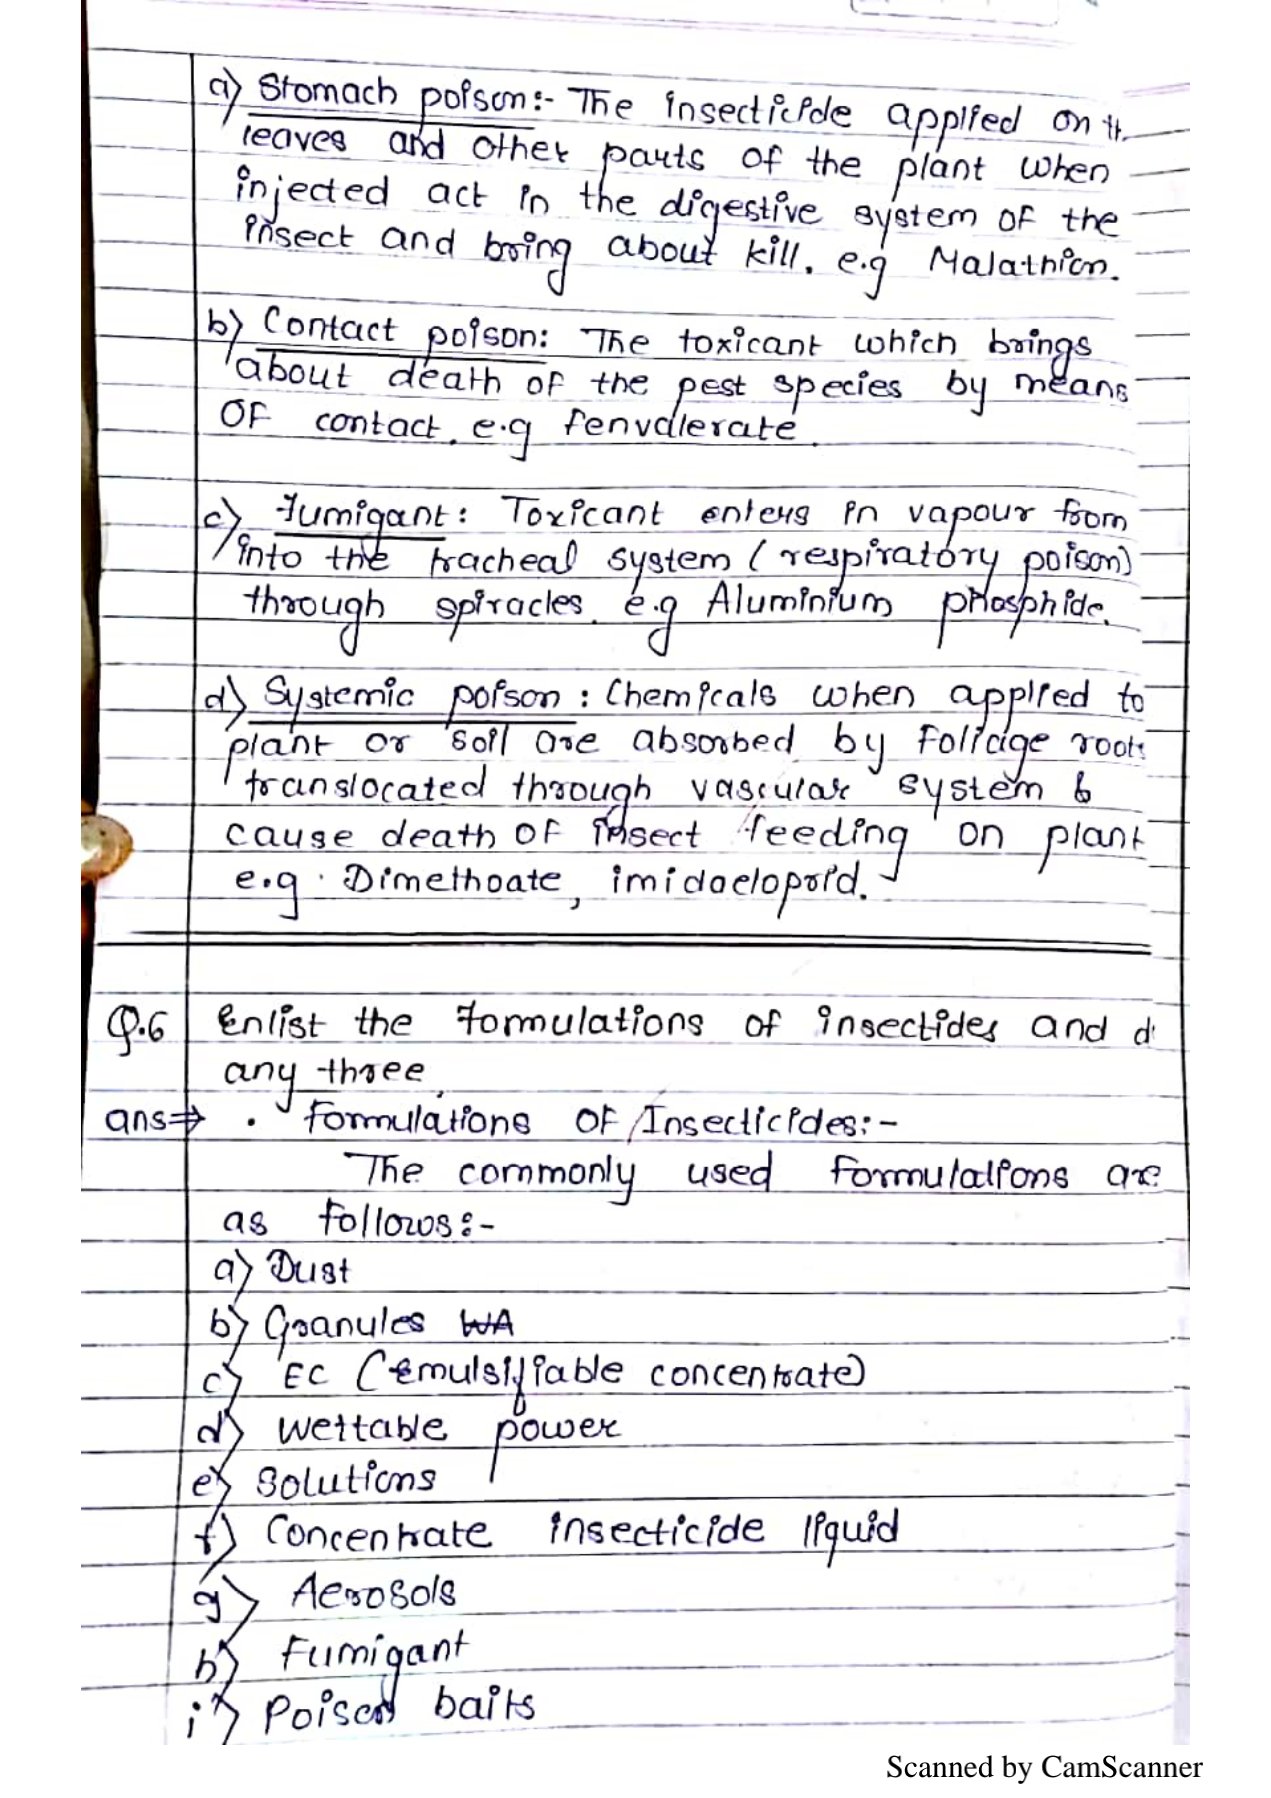 a) Stomach poison:- The insecticide applied on
leaves and other parts of the plant when
injected act in the digestive system of the
insect and bring about kill. e.g Malathion.
b) Contact poison: The toxicant which brings
about death of the pest species by means
of contact. e.g fenvalerate.
c) Fumigant: Toxicant enters in vapour from
into the tracheal system (respiratory poison)
through spiracles. e.g Aluminium phosphide.
d) Systemic poison : Chemicals when applied to
plant or soil are absorbed by foliage roots
translocated through vascular system &
cause death of insect feeding on plant
e.g. Dimethoate, imidacloprid.
Q.6 Enlist the formulations of insectides and
any three.
ans⇒ . Formulations of Insecticides:-
The commonly used formulations are
as follows:-
a) Dust
b) Granules WA
c) EC (emulsifiable concentrate)
d) Wettable power
e) Solutions
f) Concentrate insecticide liquid
g) Aerosols
h) Fumigant
i) Poison baits
Scanned by CamScanner